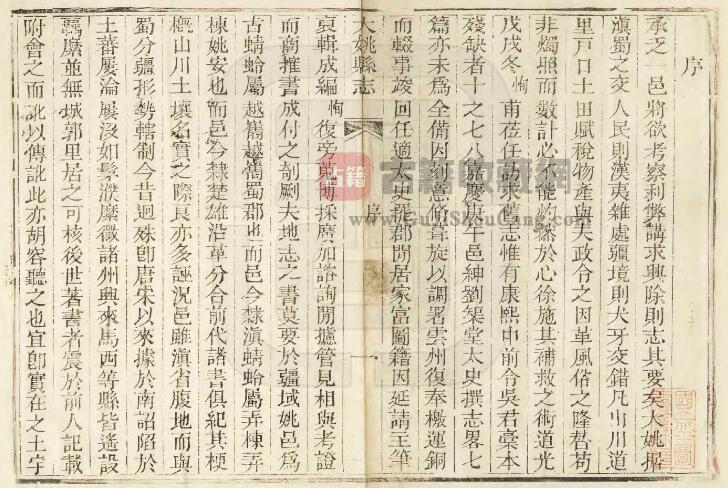 序
承乏一邑將欲考察利弊講求興除則志其要矣大姚據
滇蜀之交人民則漢夷雜處疆境則犬牙交錯凡山川道
里戶口土田賦稅物產與夫政令之因革風俗之隆替苟
非燭照而數計必不能於心徐施其補救之術道光
戊戌冬恂甫蒞任訪求舊志惟有康熙中前令吳君槀本
殘缺者十之七八嘉慶午邑紳劉榮堂太史撰志畧七
篇亦未為全備因刻意脩旋以調署雲州復奉檄運銅
而輟事竣回任適太史罷郡閒居家富圖籍因延請主筆
大姚縣志
序
一
裒輯成編恂復旁蒐博採廣加諮詢閒攄管見相與考證
而商搉書成付之剞劂夫地志之書莫要於疆域姚邑為
古蜻蛉屬越嶲越嶲蜀郡也而邑今隸滇蜻蛉屬弄棟弄
棟姚安也而邑今隸楚雄沿革分合前代諸書俱紀其梗
概山川土壤名實之際良亦多誣況邑雖滇省腹地而與
蜀分疆形勢轄制今昔迥殊卽唐宋以來據於南詔陷於
土蕃屢淪屢沒如髳濮縻徵諸州興來馬西等縣皆遙設
羈縻並無城郭里居之可核後世著書者震於前人記載
附會之而訛以傳訛此亦胡容聽之也宜卽實在之土宇
古籍
古籍收藏網
www.GuJiShouCang.com